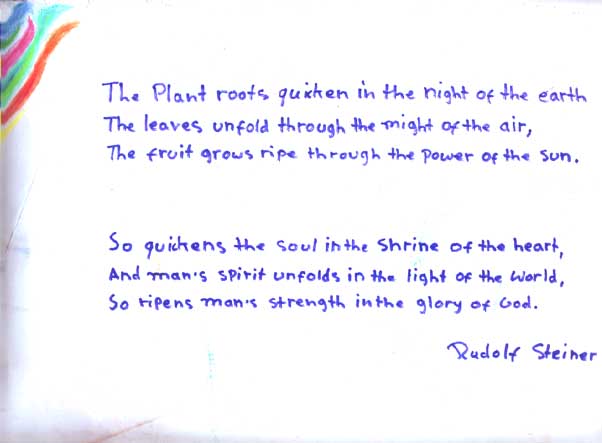 The Plant roots quicken in the night of the earth
The leaves unfold through the might of the air,
The fruit grows ripe through the power of the sun.
So quickens the soul in the shrine of the heart,
And man's spirit unfolds in the light of the world,
So ripens man's strength in the glory of God.
Rudolf Steiner